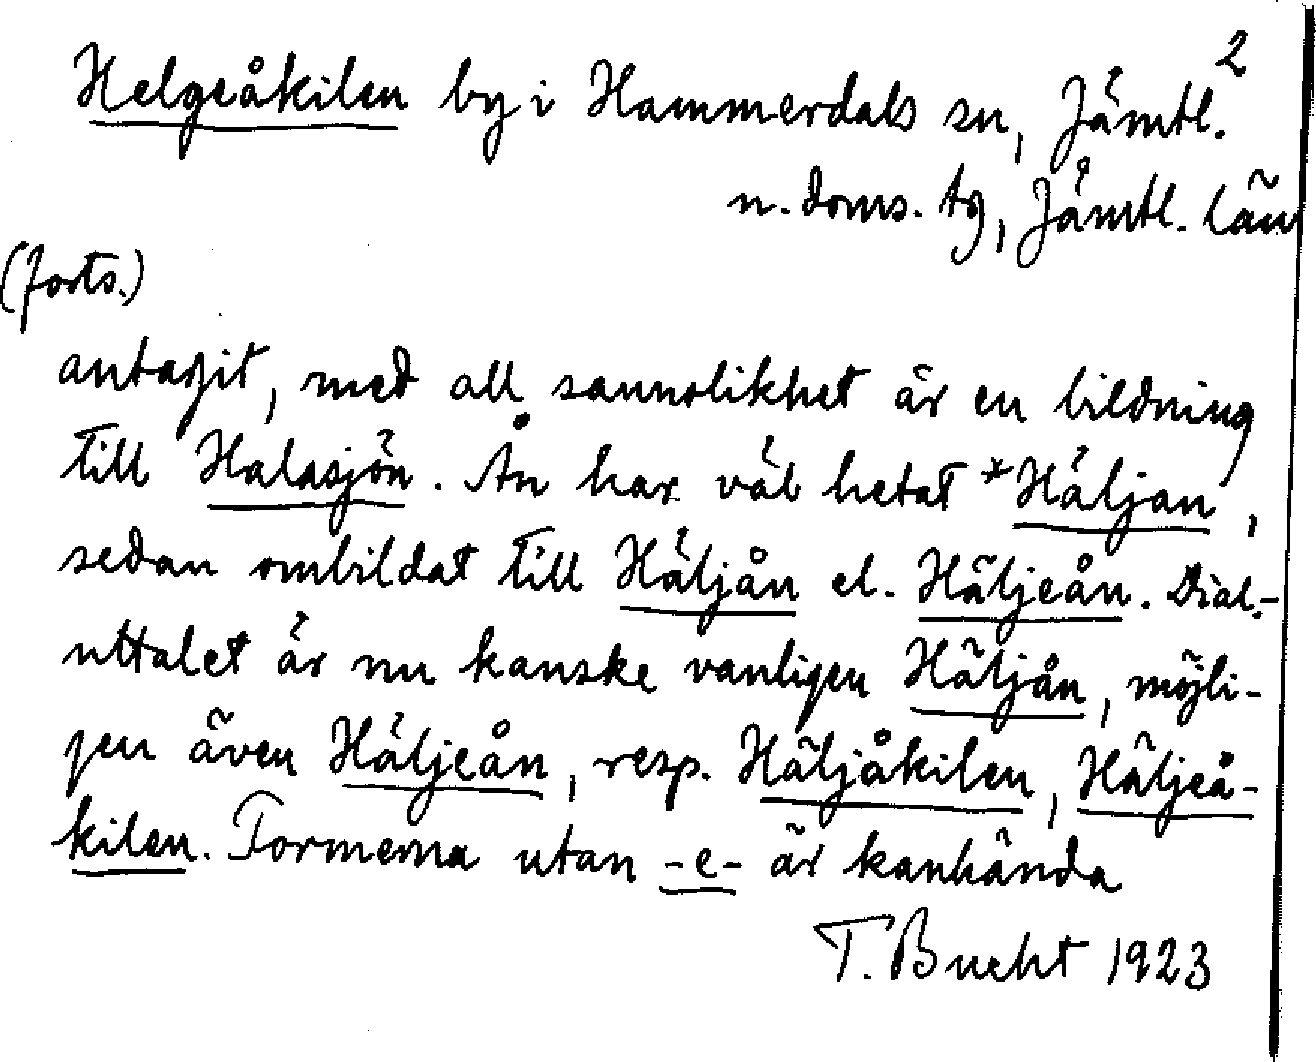 2
Helgeåkilen by i Hammerdals sn, Jämtl.
n. doms. tg, Jämtl. län
(forts.)
antagit, med all sannolikhet är en bildning
till Halasjön. Ån har väl hetat *Häljan,
sedan ombildat till Häljån el. Häljeån. Dial.-
uttalet är nu kanske vanligen Häljån, möjli-
gen även Häljeån, resp. Häljåkilen, Häljeå-
kilen. Formerna utan -e- är kanhända
T. Bucht 1923